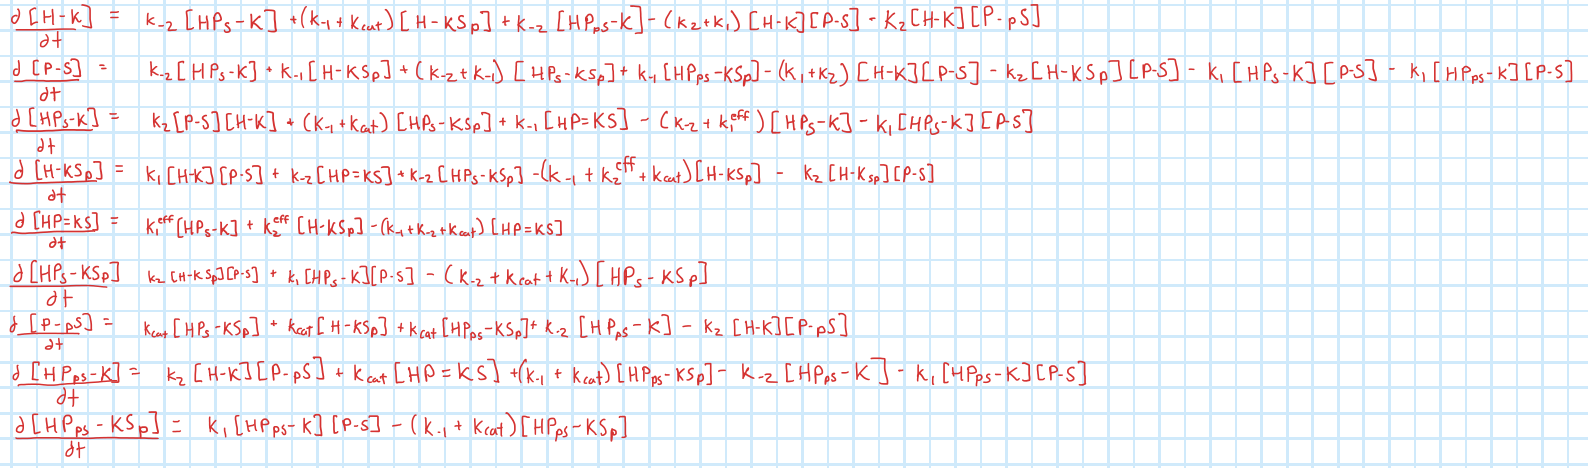 ∂[H-K]/∂t = k₋₂[HPₛ-K] + (k₋₁ + k_cat)[H-KSₚ] + k₋₂[HPₚₛ-K] - (k₂+k₁)[H-K][P-S] - K₂[H-K][P-pS]
∂[P-S]/∂t = k₋₂[HPₛ-K] + k₋₁[H-KSₚ] + (k₋₂ + k₋₁)[HPₛ-KSₚ] + k₋₁[HPₚₛ-KSₚ] - (k₁+k₂)[H-K][P-S] - k₂[H-KSₚ][P-S] - k₁[HPₛ-K][P-S] - k₁[HPₚₛ-K][P-S]
∂[HPₛ-K]/∂t = k₂[P-S][H-K] + (k₋₁+k_cat)[HPₛ-KSₚ] + k₋₁[HP=KS] - (k₋₂ + k₁^eff)[HPₛ-K] - k₁[HPₛ-K][P-S]
∂[H-KSₚ]/∂t = k₁[H-K][P-S] + k₋₂[HP=KS] + k₋₂[HPₛ-KSₚ] - (k₋₁ + k₂^eff + k_cat)[H-KSₚ] - k₂[H-KSₚ][P-S]
∂[HP=KS]/∂t = k₁^eff[HPₛ-K] + k₂^eff[H-KSₚ] - (k₋₁+k₋₂+k_cat)[HP=KS]
∂[HPₛ-KSₚ]/∂t k₂[H-KSₚ][P-S] + k₁[HPₛ-K][P-S] - (k₋₂ + k_cat + k₋₁)[HPₛ-KSₚ]
∂[P-pS]/∂t = k_cat[HPₛ-KSₚ] + k_cat[H-KSₚ] + k_cat[HPₚₛ-KSₚ] + k₋₂[HPₚₛ-K] - k₂[H-K][P-pS]
∂[HPₚₛ-K]/∂t = k₂[H-K][P-pS] + k_cat[HP=KS] + (k₋₁ + k_cat)[HPₚₛ-KSₚ] - k₋₂[HPₚₛ-K] - k₁[HPₚₛ-K][P-S]
∂[HPₚₛ-KSₚ]/∂t = k₁[HPₚₛ-K][P-S] - (k₋₁ + k_cat)[HPₚₛ-KSₚ]